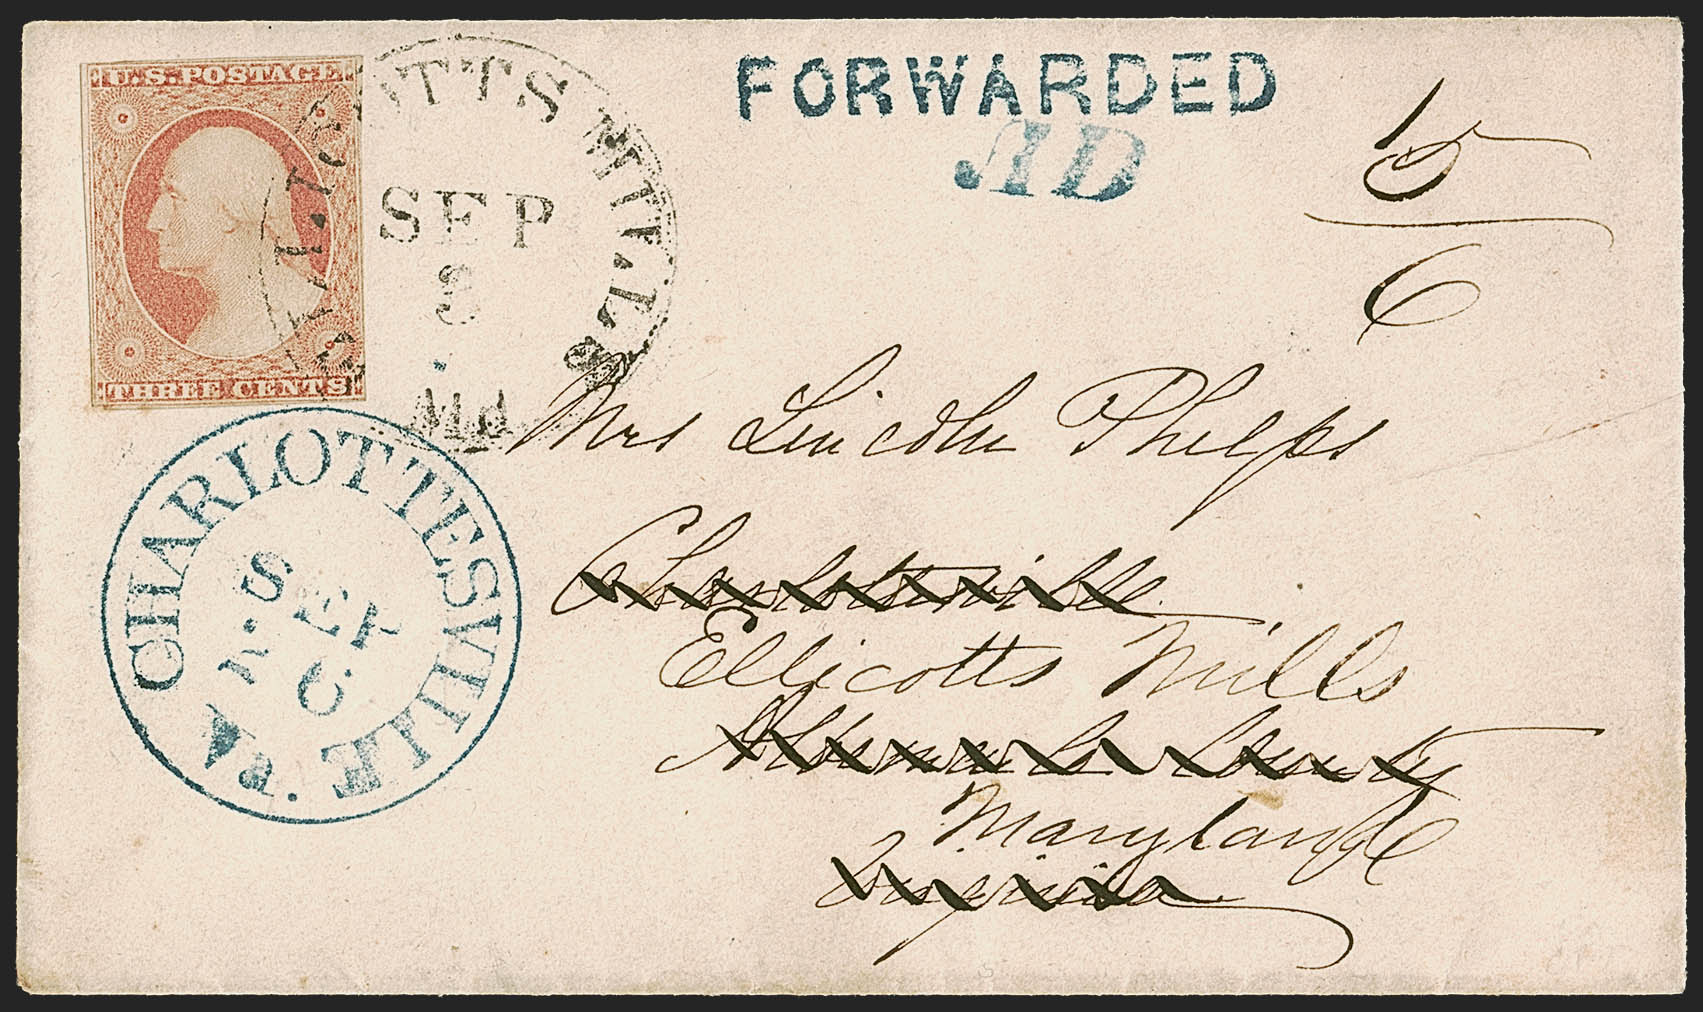 U.S. POSTAGE
THREE CENTS
ELLICOTTS MILLS
SEP
8
Md.
FORWARDED
AD
5
6
CHARLOTTESVILLE
SEP
6
VA.
Mrs Lincoln Phelps
Charlottesville
Ellicotts Mills
Albemarle County
Maryland
Virginia